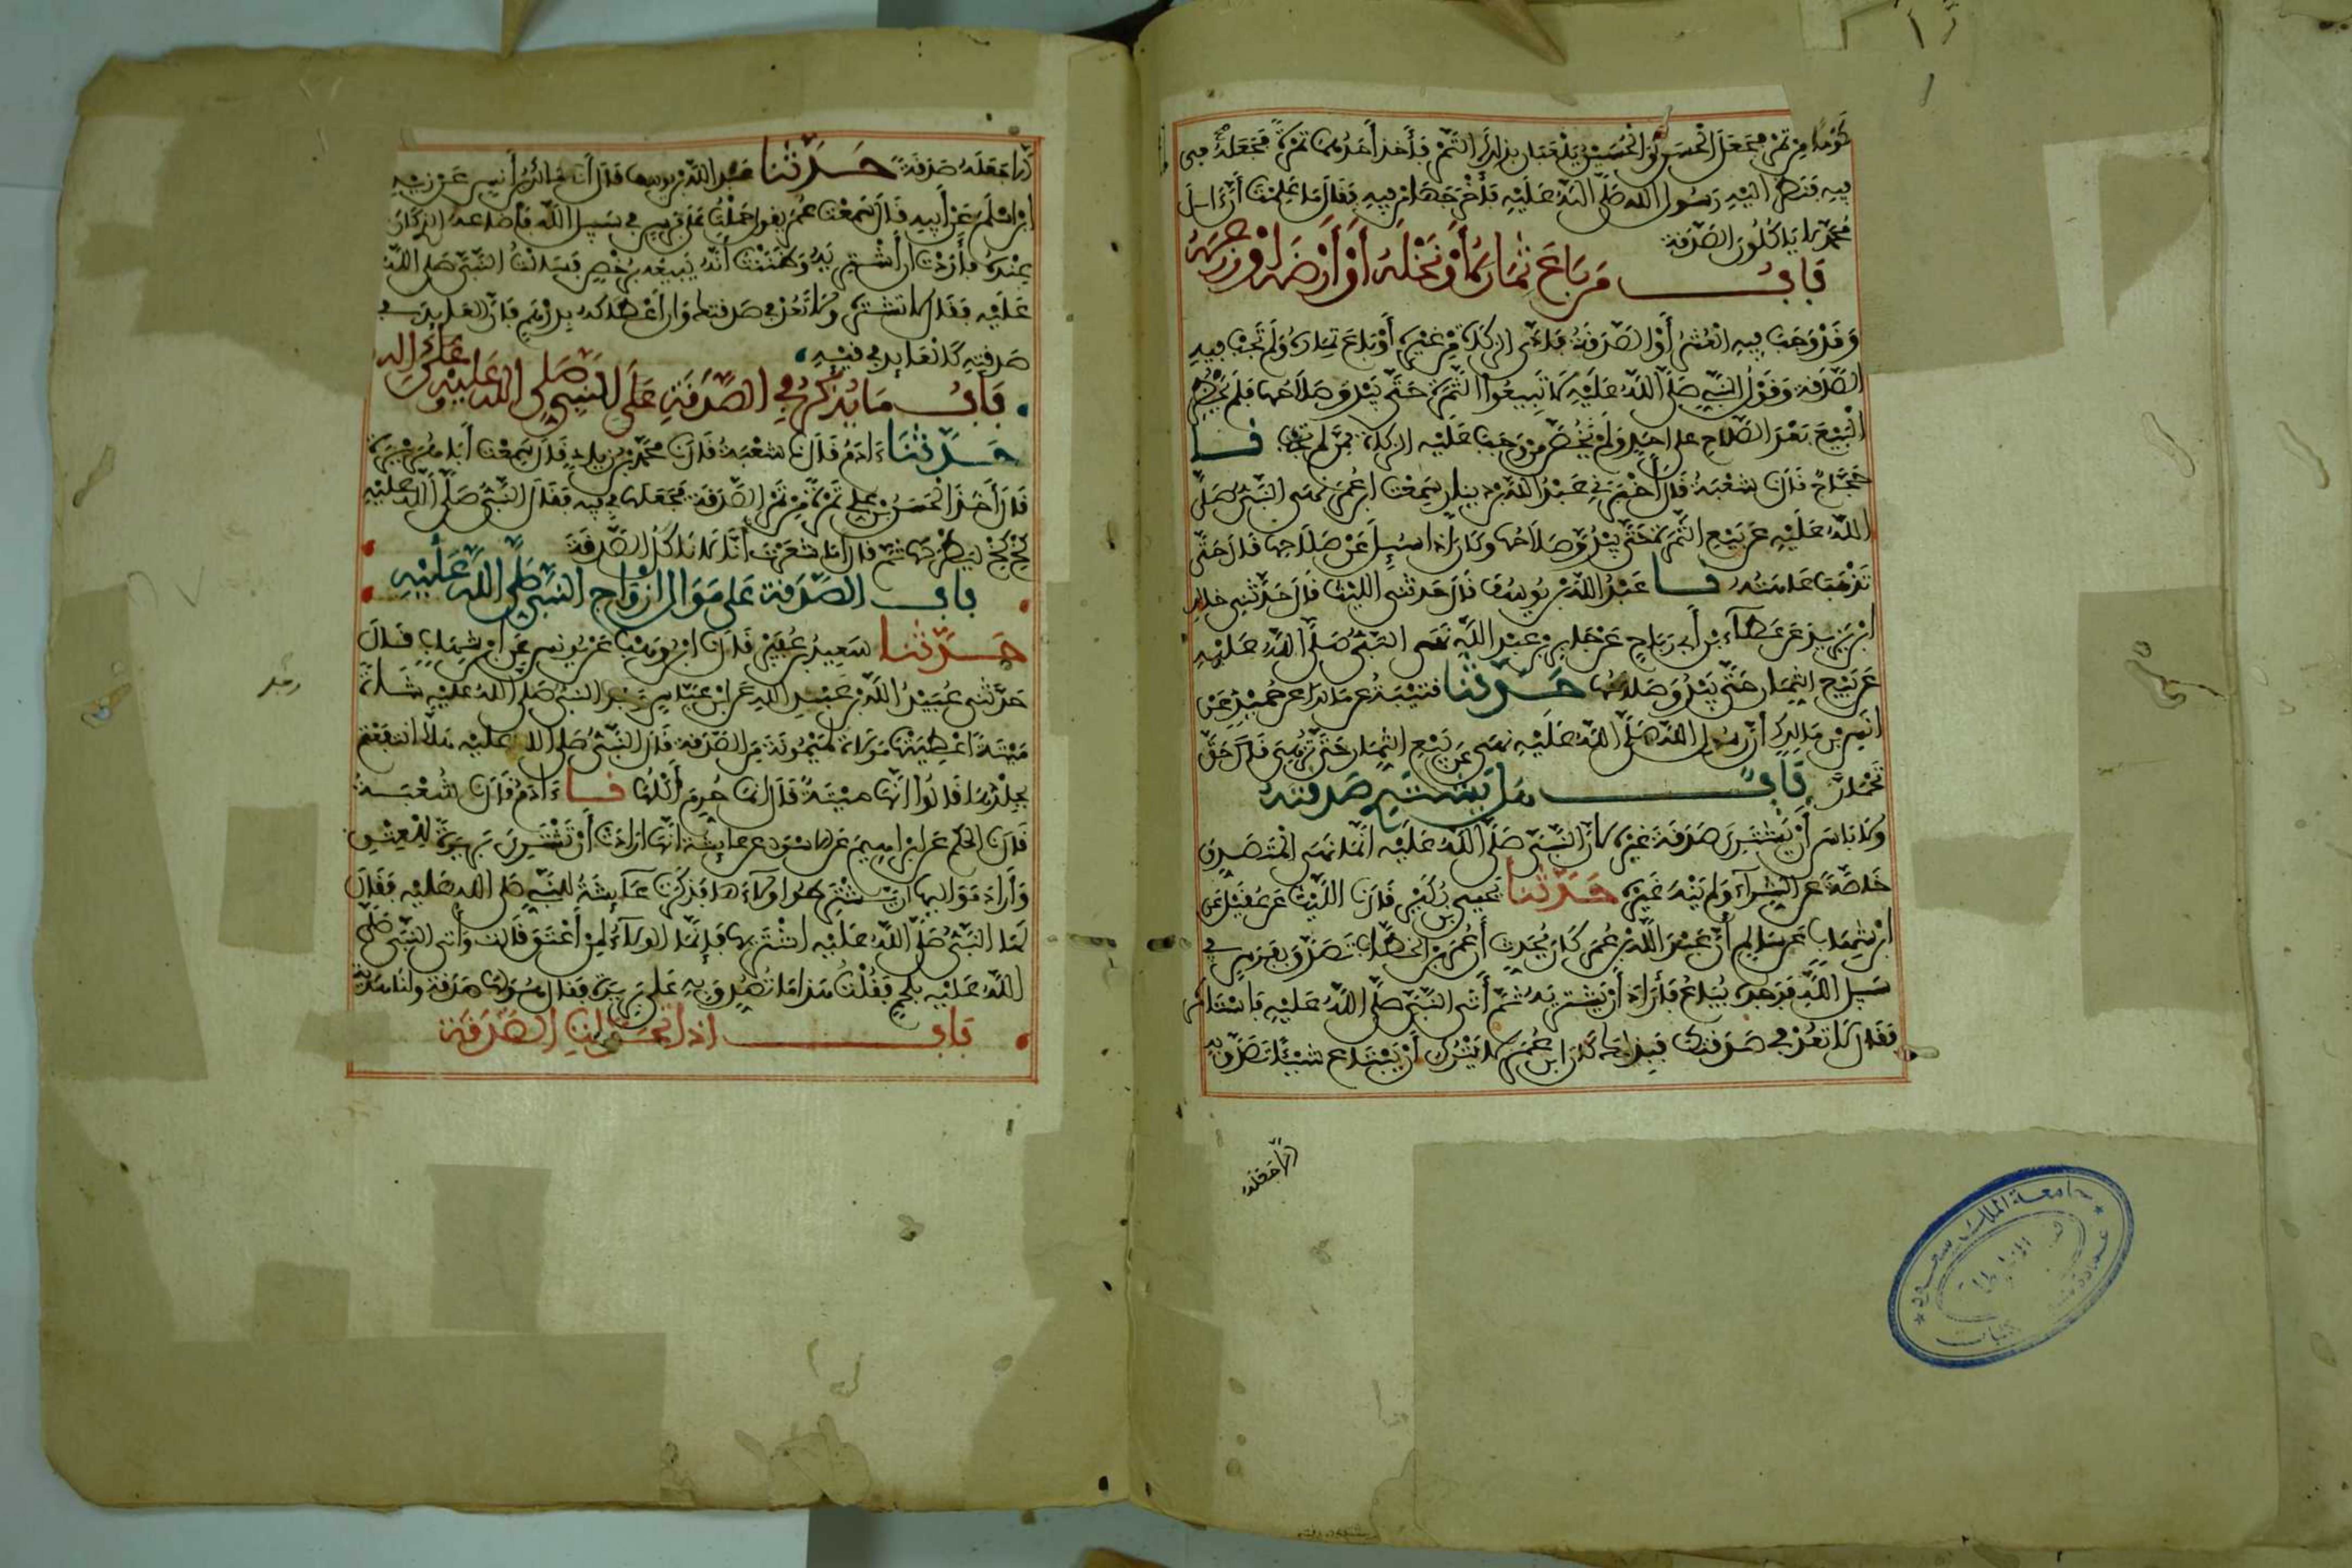 كوما من تمر فجعل الحسن والحسين يلعبان بذلك التمر فأخذ أحدهما تمرة فجعله في
فيه فنظر اليه رسول الله صلى الله عليه فأخرجها من فيه فقال ما علمت أن ءال
محمد لا ياكلون الصدقة
باب من باع ثماره أو نخله أو أرضه أو زرعه
وقد وجب فيه العشر أو الصدقة فأدى الزكاة من غيره أو باع ثماره ولم تجب فيه
الصدقة وقول النبي صلى الله عليه لا تبيعوا الثمرة حتى يبدو صلاحها فلم يحظر
البيع بعد الصلاح على احد ولم يخص من وجب عليه الزكاة ممن لم تجب نا
حجاج قال نا شعبة قال أخبرني عبد الله بن دينار سمعت ابن عمر نهى النبي صلى
الله عليه عن بيع الثمرة حتى يبدو صلاحها وكان إذا سئل عن صلاحها قال حتى
تذهب عاهته نا عبد الله بن يوسف قال حدثني الليث قال حدثني خالد
ابن يزيد عن عطاء بن أبي رباح عن جابر بن عبد الله نهى النبي صلى الله عليه
عن بيع الثمار حتى يبدو صلاحها حدثنا قتيبة عن مالك عن حميد عن
انس بن مالك أن رسول الله صلى الله عليه نهى عن بيع الثمار حتى تزهي قال حتى
تحمار باب هل يشتري صدقته
ولا باس أن يشتري صدقة غيره لأن النبي صلى الله عليه انما نهى المتصدق
خاصة عن الشراء ولم ينه غيره حدثنا يحيى بن بكير قال نا الليث عن عقيل عن
ابن شهاب عن سالم أن عبد الله بن عمر كان يحدث أن عمر بن الخطاب تصدق بفرس في
سبيل الله فوجده يباع فأراد أن يشتريه ثم أتى النبي صلى الله عليه فاستامره
فقال لا تعد في صدقتك فبذلك كان ابن عمر لا يترك أن يبتاع شيئا تصدق به
إلا جعله
إلا جعله صدقة حدثنا عبد الله بن يوسف قال أنا مالك بن أنس عن زيد
ابن اسلم عن أبيه قال سمعت عمر يقول حملت على فرس في سبيل الله فأضاعه الذي كان
عنده فأردت أن أشتريه وظننت أنه يبيعه برخص فسألت النبي صلى الله
عليه فقال لا تشتر ولا تعد في صدقتك وإن أعطاكه بدرهم فإن العايد في
صدقته كالعايد في قيئه
باب ما يذكر في الصدقة على النبي صلى الله عليه وعلى اله
حدثنا ءادم قال نا شعبة قال نا محمد بن زياد قال سمعت أبا هريرة
قال أخذ الحسن بن علي تمرة من تمر الصدقة فجعلها في فيه فقال النبي صلى الله عليه
كخ كخ ليطرحها ثم قال أما شعرت أنا لا ناكل الصدقة
باب الصدقة على موالي ازواج النبي صلى الله عليه
حدثنا سعيد بن عفير قال نا ابن وهب عن يونس عن ابن شهاب قال
حدثني عبيد الله بن عبد الله عن ابن عباس وجد النبي صلى الله عليه شاة
ميتة اعطيتها مولاة لميمونة من الصدقة قال النبي صلى الله عليه هلا انتفعتم
بجلدها قالوا انها ميتة قال انما حرم أكلها نا ءادم قال نا شعبة
قال نا الحكم عن ابراهيم عن الاسود عن عايشة انها ارادت أن تشتري بريرة للعتق
وأراد مواليها أن يشترطوا ولاءها فذكرت عايشة للنبي صلى الله عليه فقال
لها النبي صلى الله عليه اشتريها فإنما الولاء لمن أعتق قالت وأتي النبي صلى
الله عليه بلحم فقلت هذا ما تصدق به على بريرة فقال هو لها صدقة ولنا هدية
باب اذا تحولت الصدقة
جامعة الملك سعود